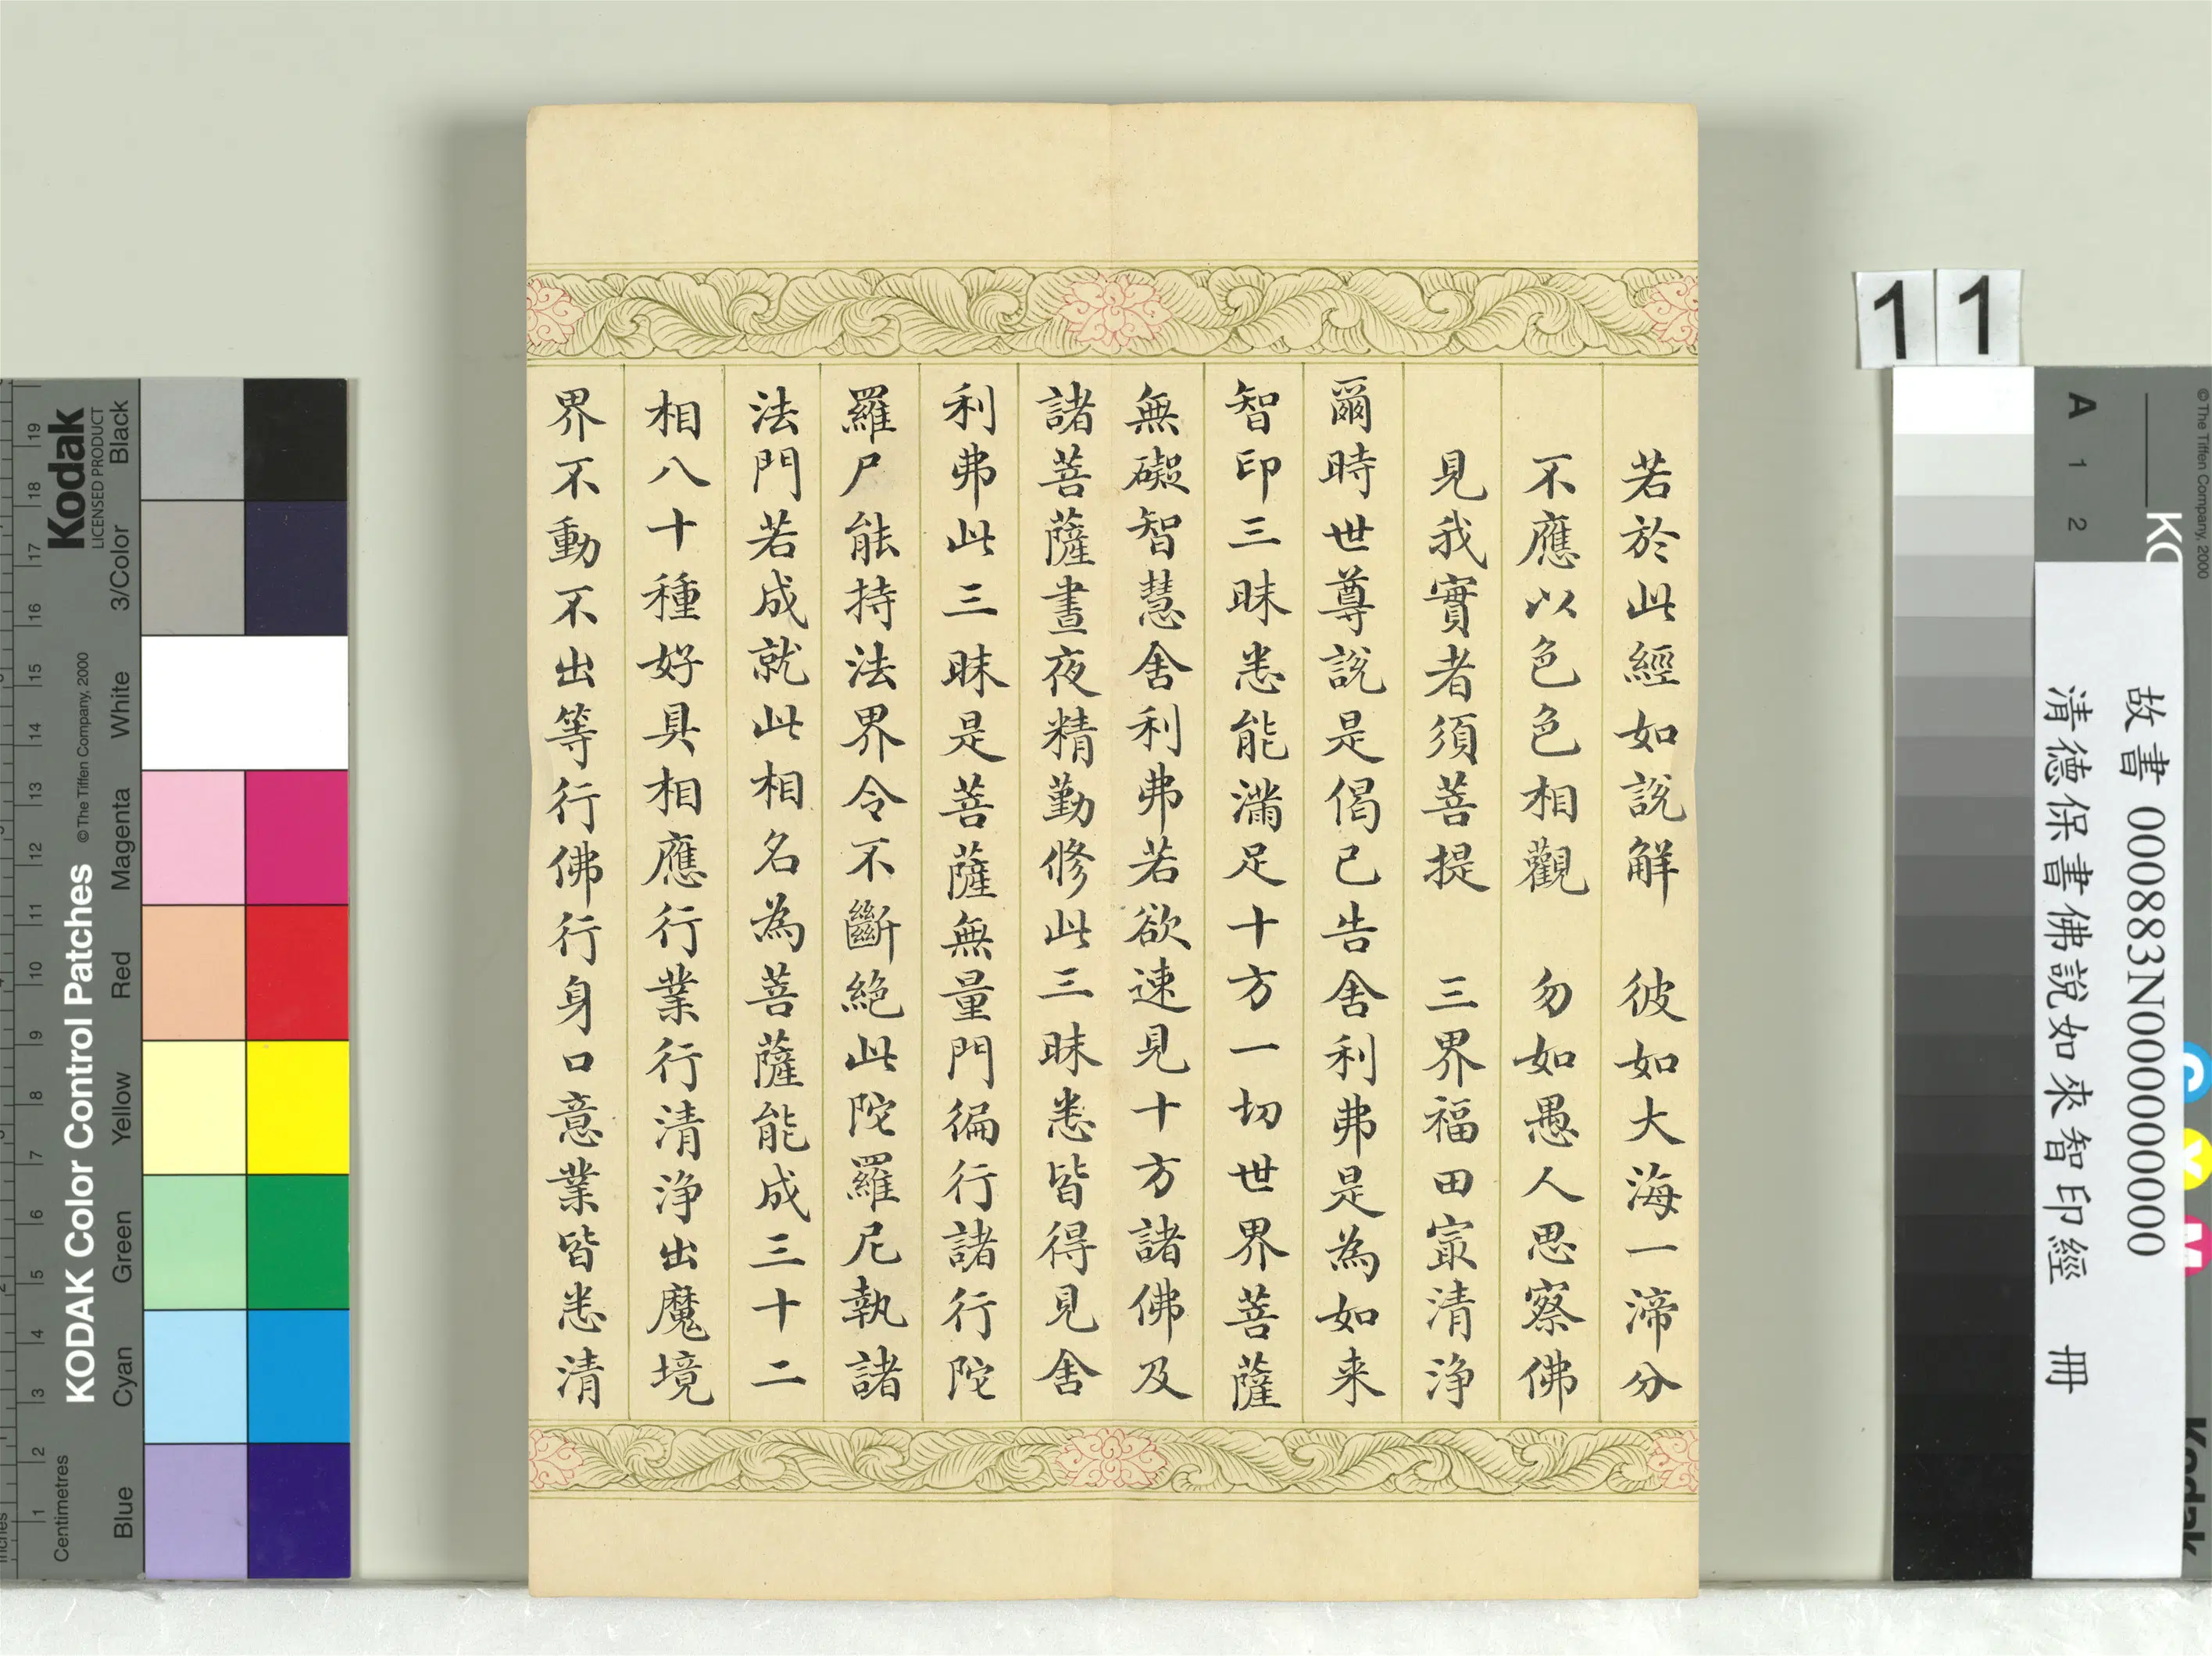 若於此經如說解　彼如大海一渧分
不應以色色相觀　勿如愚人思察佛
見我實者須菩提　三界福田㝡清淨
爾時世尊說是偈已告舍利弗是為如来
智印三昧悉能滿足十方一切世界菩薩
無礙智慧舍利弗若欲速見十方諸佛及
諸菩薩晝夜精勤修此三昧悉皆得見舍
利弗此三昧是菩薩無量門徧行諸行陀
羅尸能持法界令不斷絕此陀羅尼執諸
法門若成就此相名為菩薩能成三十二
相八十種好具相應行業行清淨出魔境
界不動不出等行佛行身口意業皆悉清
11
故書 000883N000000000
清德保書佛說如來智印經　冊
Kodak
LICENSED PRODUCT
KODAK Color Control Patches
©The Tiffen Company, 2000
Centimetres
Inches
Blue
Cyan
Green
Yellow
Red
Magenta
White
3/Color
Black
1 2 3 4 5 6 7 8 9 10 11 12 13 14 15 16 17 18 19
A 1 2
©The Tiffen Company, 2000
C
Y
M
Kodak